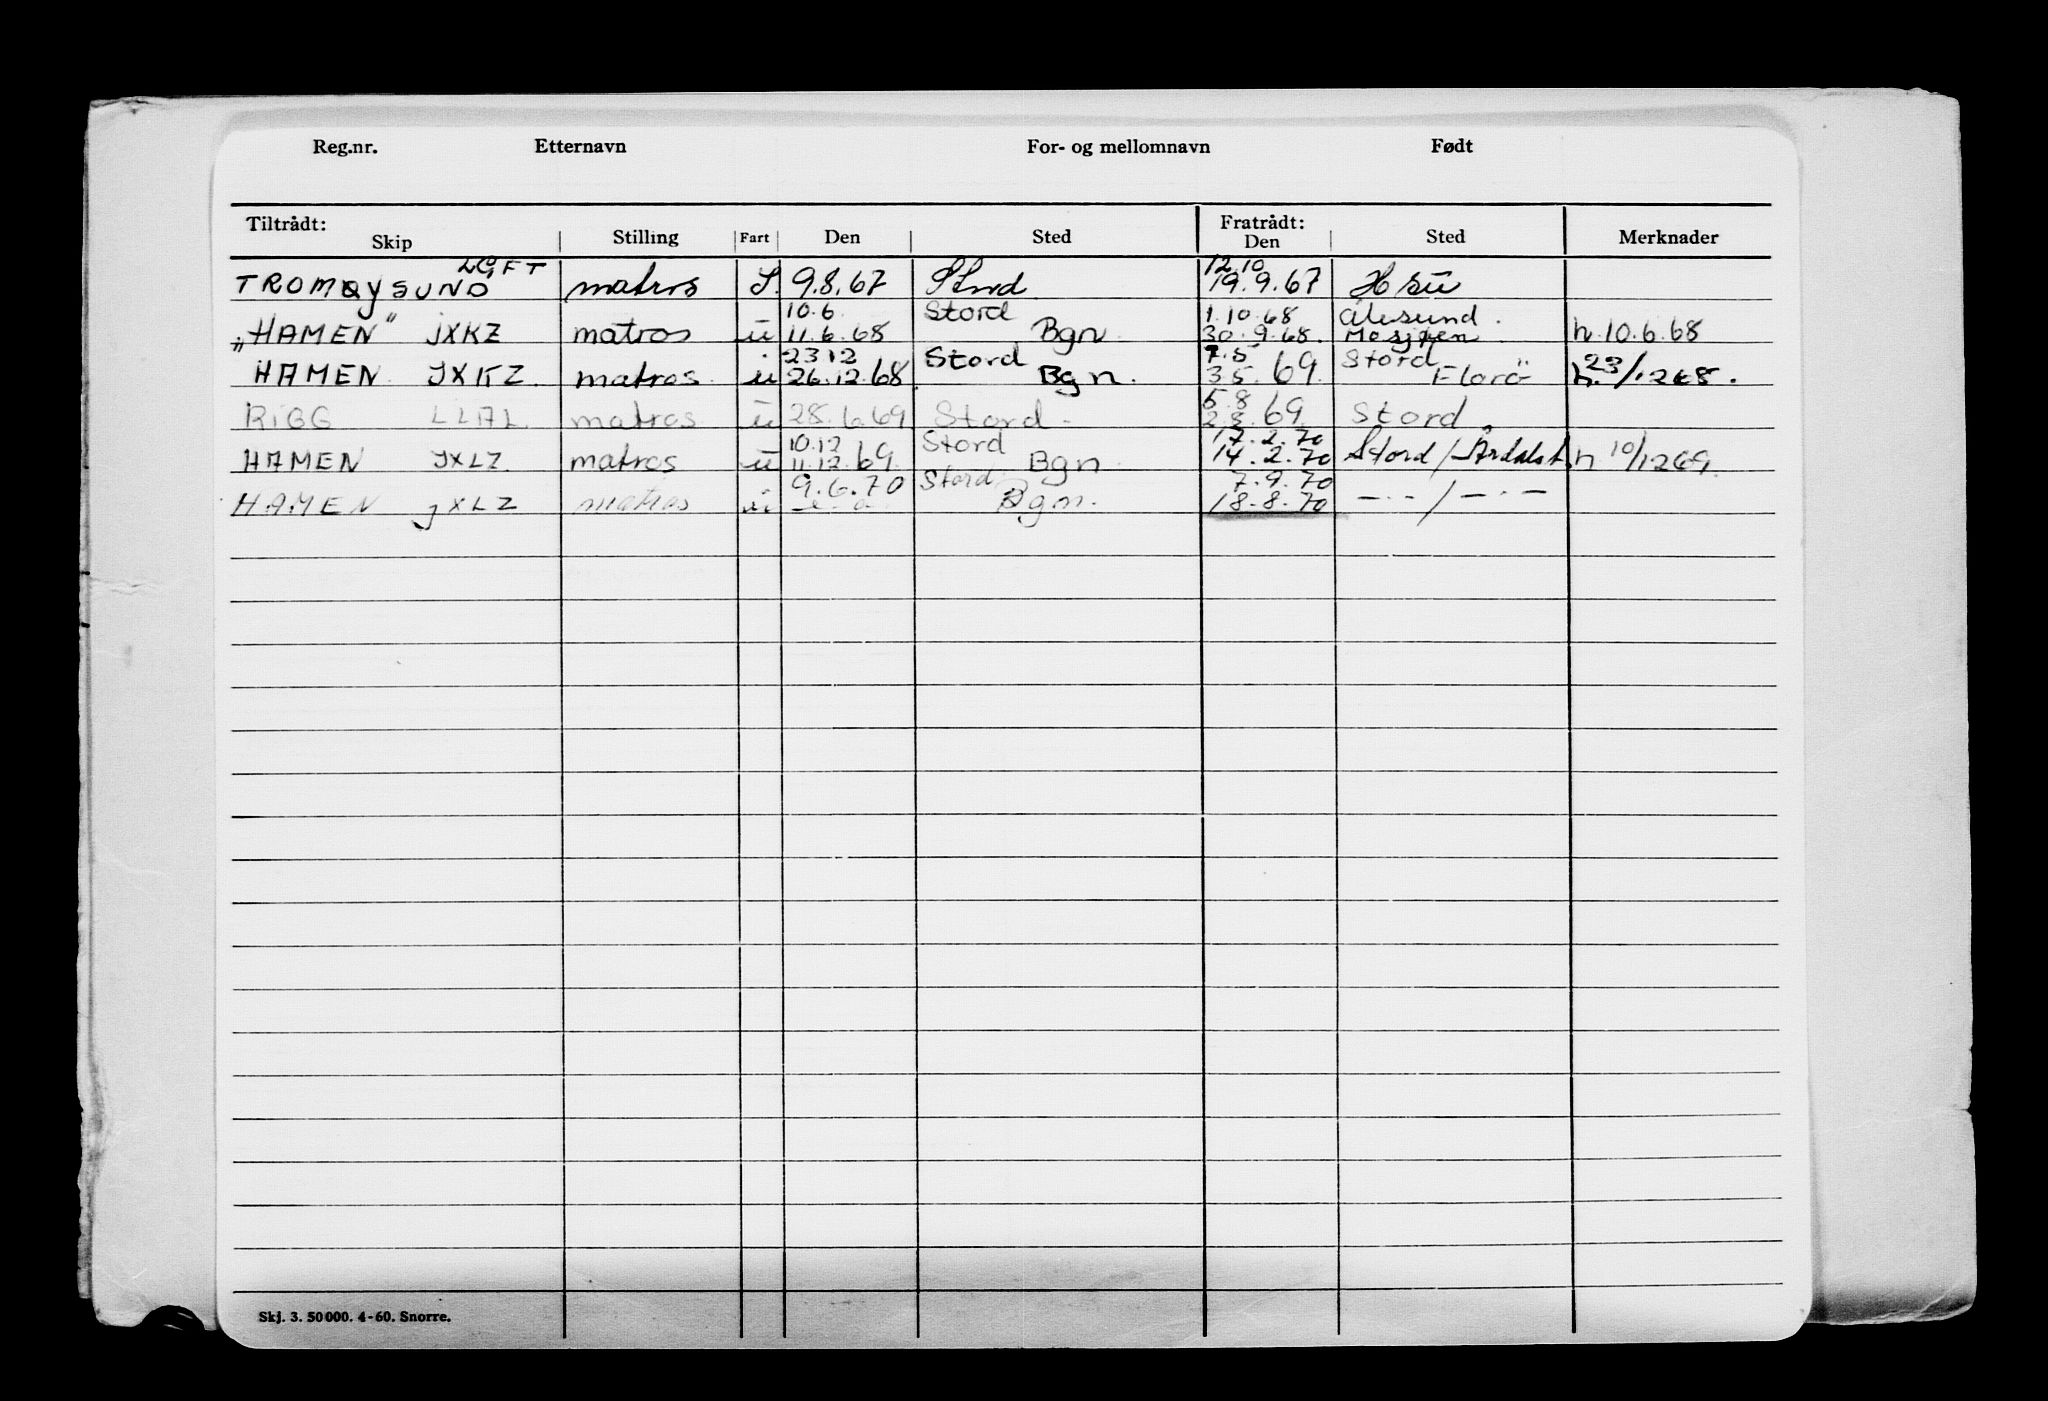 Reg.nr. Etternavn For- og mellomnavn Født
Tiltrådt: Fratrådt:
Skip Stilling Fart Den Sted Den Sted Merknader
LGFT 12.10
TROMØYSUND matros S. 9.8.67 Stord 19.9.67 H sū
10.6. Stord 1.10.68 Ålesund.
„HAMEN" JXKZ matros ū 11.6.68 Bgn. 30.9.68. Mosjøen h.10.6.68
2312 Stord 7.5 Stord
HAMEN JXKZ. matros. ū 26.12.68 Bgn. 3.5.69. Florö h.23/1268.
5.8
RIGG LLAL matros ū 28.6.69 Stord. 2.8.69 Stord
10.12 Stord 17.2.70
HAMEN JXLZ matros ū 11.12.69. Bgn 14.2.70 Stord/Årdalst. h 10/1269.
9.6.70 Stord 7.9.70
HAMEN JXLZ matros ū Bgn. 18.8.70 —·—/—·—
Skj. 3. 50000. 4-60. Snorre.